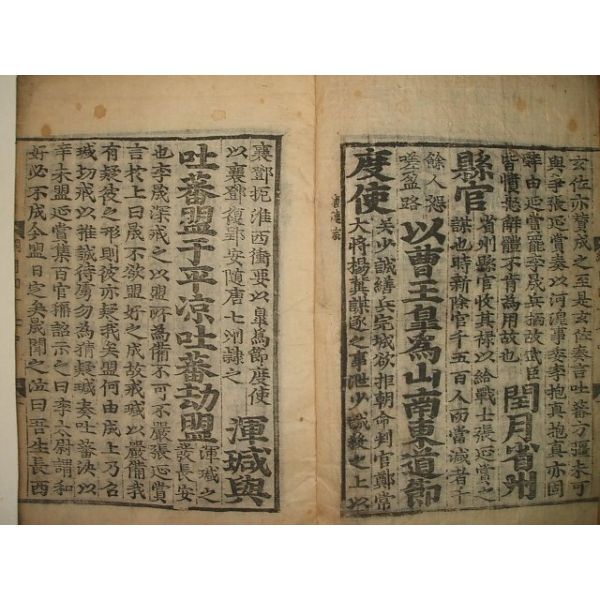 玄佐亦贊成之至是玄佐奏言吐蕃方彊未可
與爭張延賞奏以河湟事委李抱真抱真亦固
辭由延賞罷李晟兵柄故武臣
皆憤怒解體不肯為用故也
閏月省州
縣官
省州縣官收其祿以給戰士張延賞之
謀也時新除官千五百人而當減者千
餘人怨
嗟盈路
以曹王皐為山南東道節
度使
吳少誠繕兵完城欲拒朝命判官鄭常
大將楊冀謀逐之事泄少誠殺之上以
襄鄧扼淮西衝要以皐為節度使
以襄鄧復郢安隨唐七州隸之
渾瑊與
吐蕃盟于平涼吐蕃劫盟
渾瑊之
發長安
也李晟深戒之以盟所為備不可不嚴張延賞
言於上曰晟不欲盟好之成故戒瑊以嚴備我
有疑彼之形則彼亦疑我矣盟何由成上乃召
瑊切戒以推誠待虜勿為猜疑瑊奏吐蕃決以
辛未盟延賞集百官稱詔示之曰李太尉謂和
好必不成今盟日定矣晟聞之泣曰吾生長西